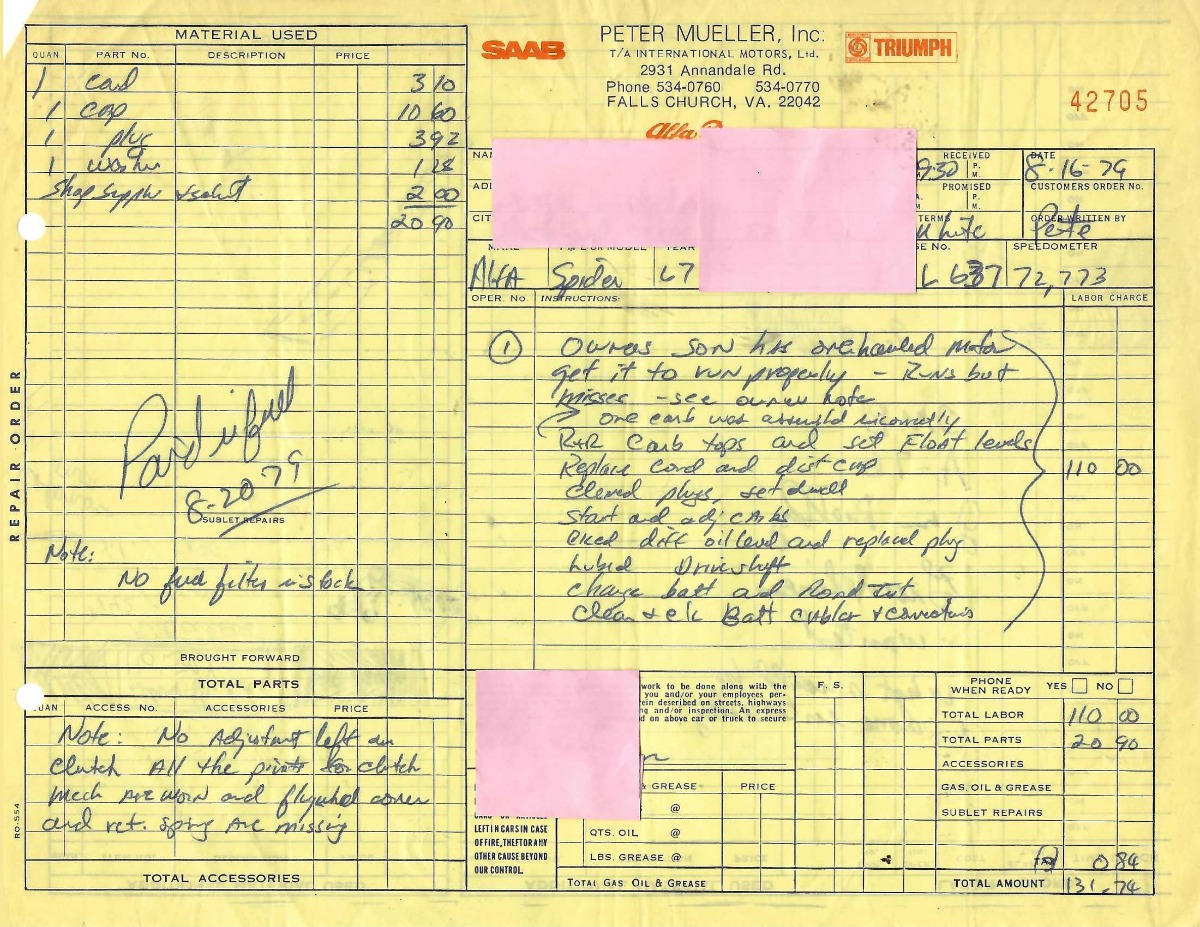 MATERIAL USED
QUAN. PART No. DESCRIPTION PRICE
1 3 10
1 cap 10 60
1 plug 3 92
1 washer 1 28
Shop supplies 2 00
20 90
REPAIR ORDER
Paid in full
8-20-79
SUBLET REPAIRS
Note:
No fuel filter in stock
BROUGHT FORWARD
TOTAL PARTS
QUAN ACCESS No. ACCESSORIES PRICE
Note: No Adjustment left on
clutch All the pivots for clutch
mech are worn and flywheel cover
and ret. spring are missing
RO-554
TOTAL ACCESSORIES
SAAB
PETER MUELLER, Inc.
T/A INTERNATIONAL MOTORS, Ltd.
2931 Annandale Rd.
Phone 534-0760 534-0770
FALLS CHURCH, VA. 22042
TRIUMPH
Alfa
42705
RECEIVED
9:30
P.
M.
DATE
8-16-79
PROMISED
P.
M.
CUSTOMERS ORDER No.
TERMS
White
ORDER WRITTEN BY
Pete
YEAR
SPEEDOMETER
Alfa Spider 67 L 637 72,773
OPER. No. INSTRUCTIONS: LABOR CHARGE
1 Owners son has overhauled motor
get it to run properly - Runs but
misses - see owners note
one carb was assembled incorrectly
R+R Carb tops and set Float levels
Replace and dist cap 110 00
Cleaned plugs, set dwell
Start and adj carbs
Cked diff oil level and replaced plug
Lubed Driveshaft
charge batt and Road test
Clean + ck Batt cables + connections
work to be done along with the
you and/or your employees per-
rein described on streets, highways
ng and/or inspection. An express
d on above car or truck to secure
F. S.
PHONE WHEN READY YES NO
TOTAL LABOR 110 00
TOTAL PARTS 20 90
ACCESSORIES
GAS, OIL & GREASE
SUBLET REPAIRS
TAX 0 84
TOTAL AMOUNT 131.74
& GREASE PRICE
@
QTS. OIL @
LBS. GREASE @
TOTAL GAS, OIL & GREASE
LEFT IN CARS IN CASE
OF FIRE, THEFT OR ANY
OTHER CAUSE BEYOND
OUR CONTROL.